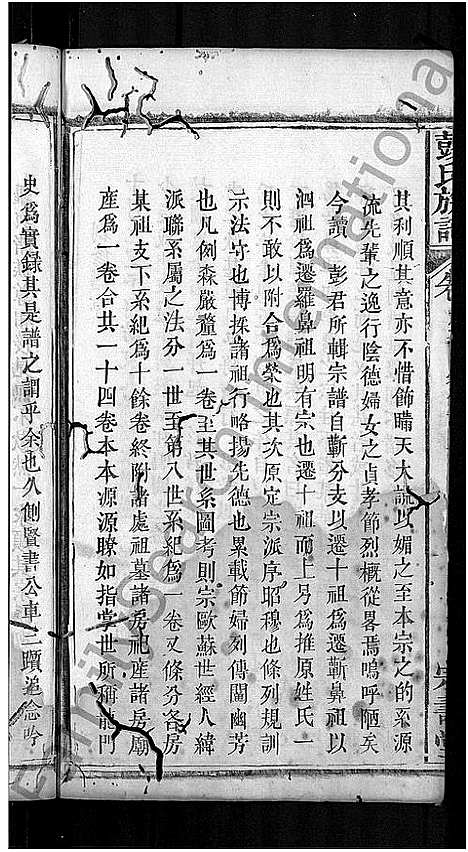 彭氏族譜
其利順其意亦不惜飾瞞天大謊以媚之至本宗之的系源
流先輩之逸行陰德婦女之貞孝節烈概從畧焉嗚呼陋矣
今讀 彭君所輯宗譜自蘄分支以遷十祖爲遷蘄鼻祖以
泗祖爲遷羅鼻祖明有宗也遷十祖而上另爲推原姓氏一
則不敢以附合爲榮也其次原定宗派序昭穆也條列規訓
示法守也博採諸祖行略揚先德也累載節婦列傳闡幽芳
也凡例森嚴釐爲一卷至其世系圖考則宗歐蘇世經人緯
派聯系屬之法分一世至第八世系紀爲一卷又條分各房
某祖支下系紀爲十餘卷終附諸處祖墓諸房祀產諸房廟
產爲一卷合共一十四卷本本源源瞭如指掌世所稱龍門
史爲實錄其是譜之謂乎余也久側賢書公車二躓追念吟
FamilySearch International